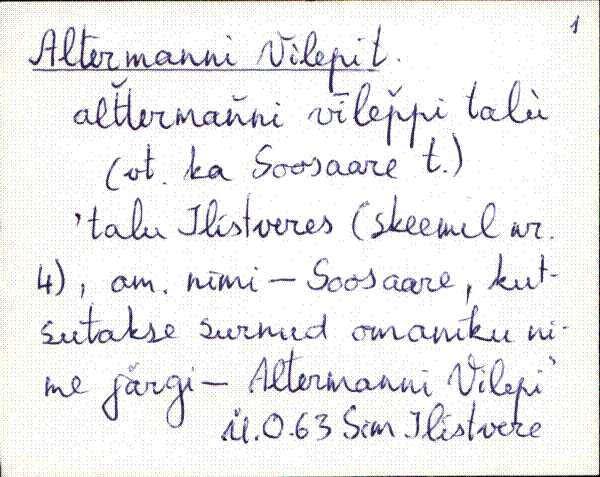 1
Altermanni Vilepi t.
al̆t̆terman̆ni vīlep̆pi talù
(vt. ka Soosaare t.)
'talu Ilistveres (skeemil nr.
4), am. nimi – Soosaare, kut-
sutakse surnud omaniku ni-
me järgi – Altermanni Vilepi'
Ü.O.63 Sim Ilistvere